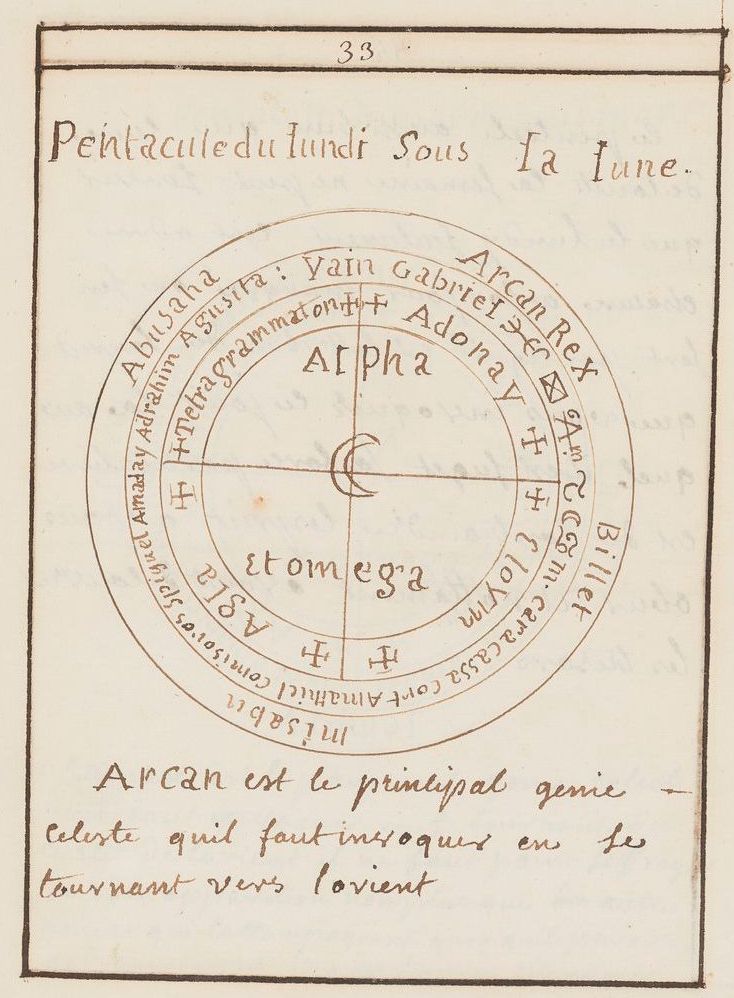 33
Pentacule du lundi sous la lune.
Abusaha Arcan Rex Billet misabu
Adrahim Agusita: Vain Gabriel
Am
m. caracassa cort Amathiel comisoros spiguel Amaday
Tetragrammaton Adonay Eloym Agla
Alpha
Et omega
Arcan est le principal genie -
celeste quil faut invoquer en se
tournant vers lorient